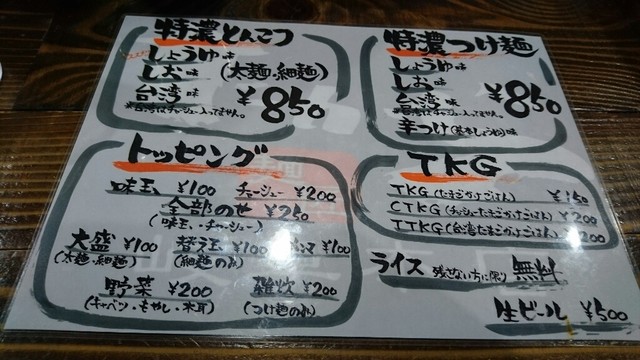 特濃とんこつ
しょうゆ味
しお味 (太麺・細麺)
台湾味 ¥850
※台湾はチャーシュー入ってません。
特濃つけ麺
しょうゆ味
しお味
台湾味 ¥850
※台湾はチャーシュー入ってません。
辛つけ(基本しょうゆ)味
トッピング
味玉 ¥100 チャーシュー ¥200
全部のせ ¥250
(味玉・チャーシュー)
大盛 ¥100 替え玉 ¥100 ¥100
(太麺・細麺) (細麺のみ)
野菜 ¥200 雑炊 ¥200
(キャベツ・もやし・木耳) (つけ麺のみ)
TKG
TKG (たまごかけごはん) ¥150
CTKG (チャーシューたまごかけごはん) ¥200
TTKG (台湾たまごかけごはん) ¥200
ライス 残さない方に限り 無料
生ビール ¥500